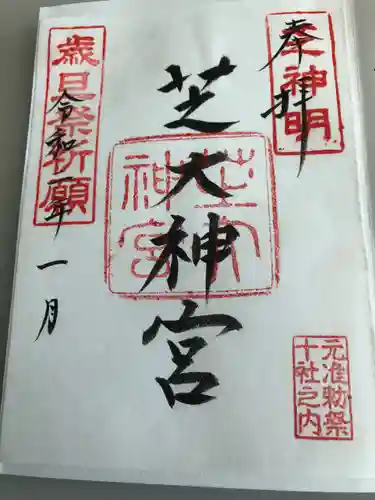 奉拝
関東神明
芝大神宮
芝大神宮
元准勅祭
十社之内
歳旦祭祈願
令和二年
一月